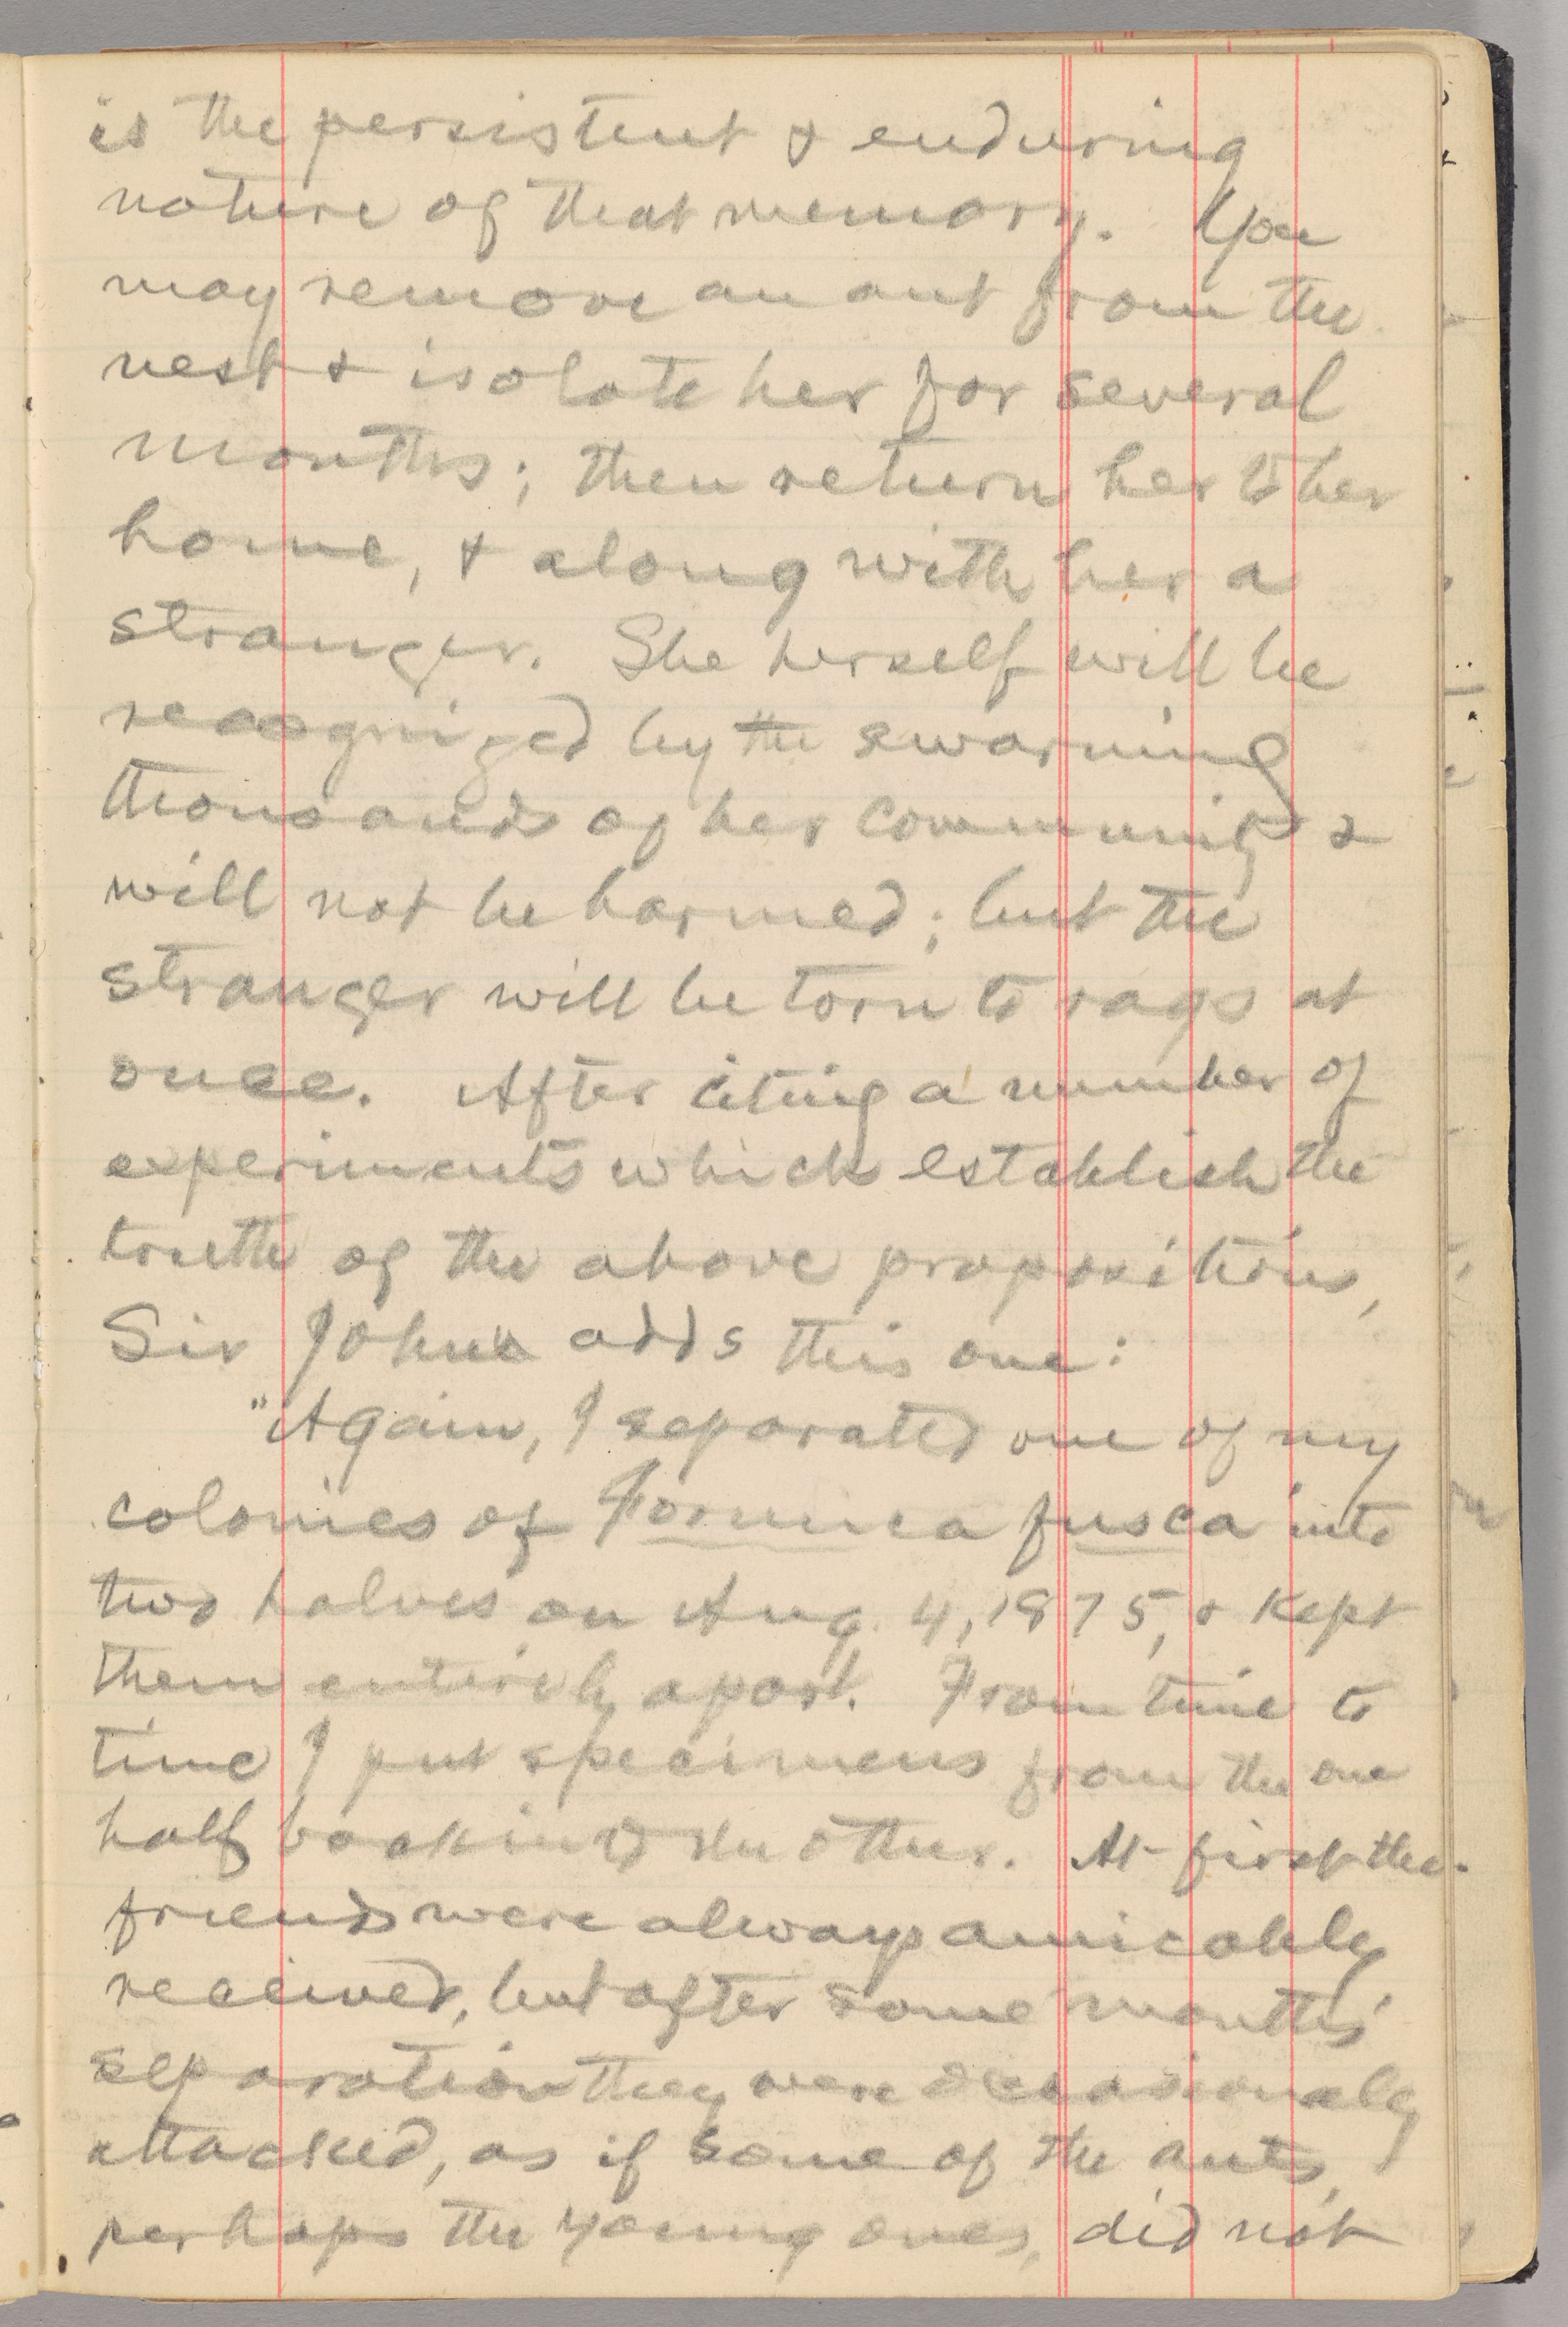 is the persistent & enduring
nature of that memory. You
may remove an ant from the
nest & isolate her for several
months; then return her to her
home, & along with her a
stranger. She herself will be
recognized by the swarming
thousands of her community &
will not be harmed; but the
stranger will be torn to rags at
once. After citing a number of
experiments which establish the
truth of the above propositions,
Sir John adds this one:
"Again, I separated one of my
colonies of Formica fusca into
two halves on Aug. 4, 1875, & kept
them entirely apart. From time to
time I put specimens from the one
half back into the other. At first the
friends were always amicably
received, but after some months'
separation they were occasionally
attacked, as if some of the ants,
perhaps the young ones, did not